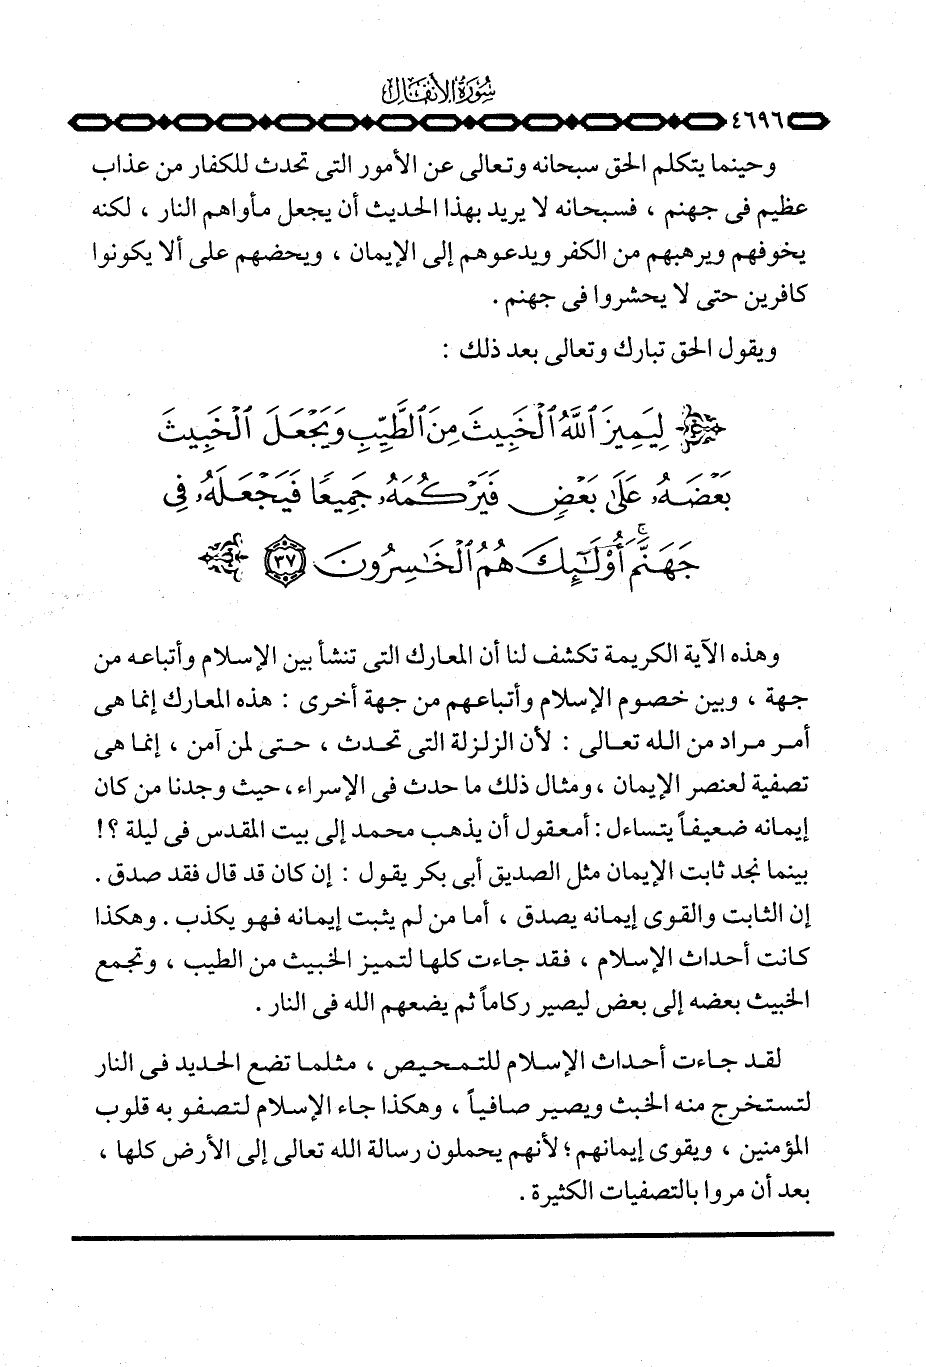 سُورَةُ الأَنفَالِ
٤٦٩٦
وحينما يتكلم الحق سبحانه وتعالى عن الأمور التى تحدث للكفار من عذاب
عظيم فى جهنم ، فسبحانه لا يريد بهذا الحديث أن يجعل مأواهم النار ، لكنه
يخوفهم ويرهبهم من الكفر ويدعوهم إلى الإيمان ، ويحضهم على ألا يكونوا
كافرين حتى لا يحشروا فى جهنم .
ويقول الحق تبارك وتعالى بعد ذلك :
لِيَمِيزَ ٱللَّهُ ٱلْخَبِيثَ مِنَ ٱلطَّيِّبِ وَيَجْعَلَ ٱلْخَبِيثَ
بَعْضَهُۥ عَلَىٰ بَعْضٍ فَيَرْكُمَهُۥ جَمِيعًا فَيَجْعَلَهُۥ فِى
جَهَنَّمَ ۚ أُوْلَٰٓئِكَ هُمُ ٱلْخَٰسِرُونَ ٣٧
وهذه الآية الكريمة تكشف لنا أن المعارك التى تنشأ بين الإسلام وأتباعه من
جهة ، وبين خصوم الإسلام وأتباعهم من جهة أخرى : هذه المعارك إنما هى
أمر مراد من الله تعالى : لأن الزلزلة التى تحدث ، حتى لمن آمن ، إنما هى
تصفية لعنصر الإيمان ، ومثال ذلك ما حدث فى الإسراء ، حيث وجدنا من كان
إيمانه ضعيفاً يتساءل : أمعقول أن يذهب محمد إلى بيت المقدس فى ليلة ؟!
بينما نجد ثابت الإيمان مثل الصديق أبى بكر يقول : إن كان قد قال فقد صدق .
إن الثابت والقوى إيمانه يصدق ، أما من لم يثبت إيمانه فهو يكذب . وهكذا
كانت أحداث الإسلام ، فقد جاءت كلها لتميز الخبيث من الطيب ، وتجمع
الخبيث بعضه إلى بعض ليصير ركاماً ثم يضعهم الله فى النار .
لقد جاءت أحداث الإسلام للتمحيص ، مثلما تضع الحديد فى النار
لتستخرج منه الخبث ويصير صافياً ، وهكذا جاء الإسلام لتصفو به قلوب
المؤمنين ، ويقوى إيمانهم ؛ لأنهم يحملون رسالة الله تعالى إلى الأرض كلها ،
بعد أن مروا بالتصفيات الكثيرة .